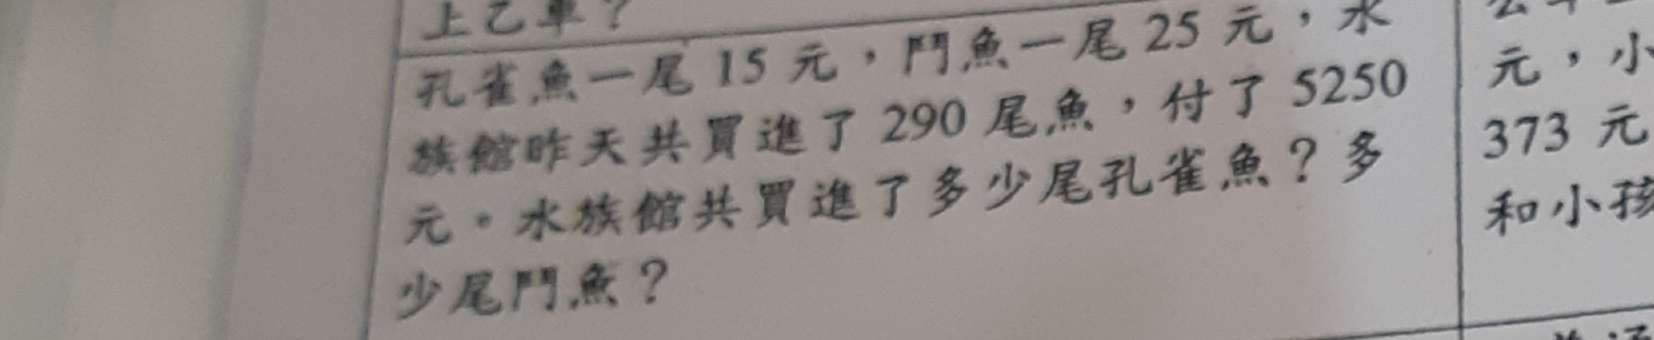 上乙車？
孔雀魚一尾 15 元，鬥魚一尾 25 元，水
族館昨天共買進了 290 尾魚，付了 5250
元。水族館共買進了多少尾孔雀魚？多
少尾鬥魚？
元，小
373 元
和小孩